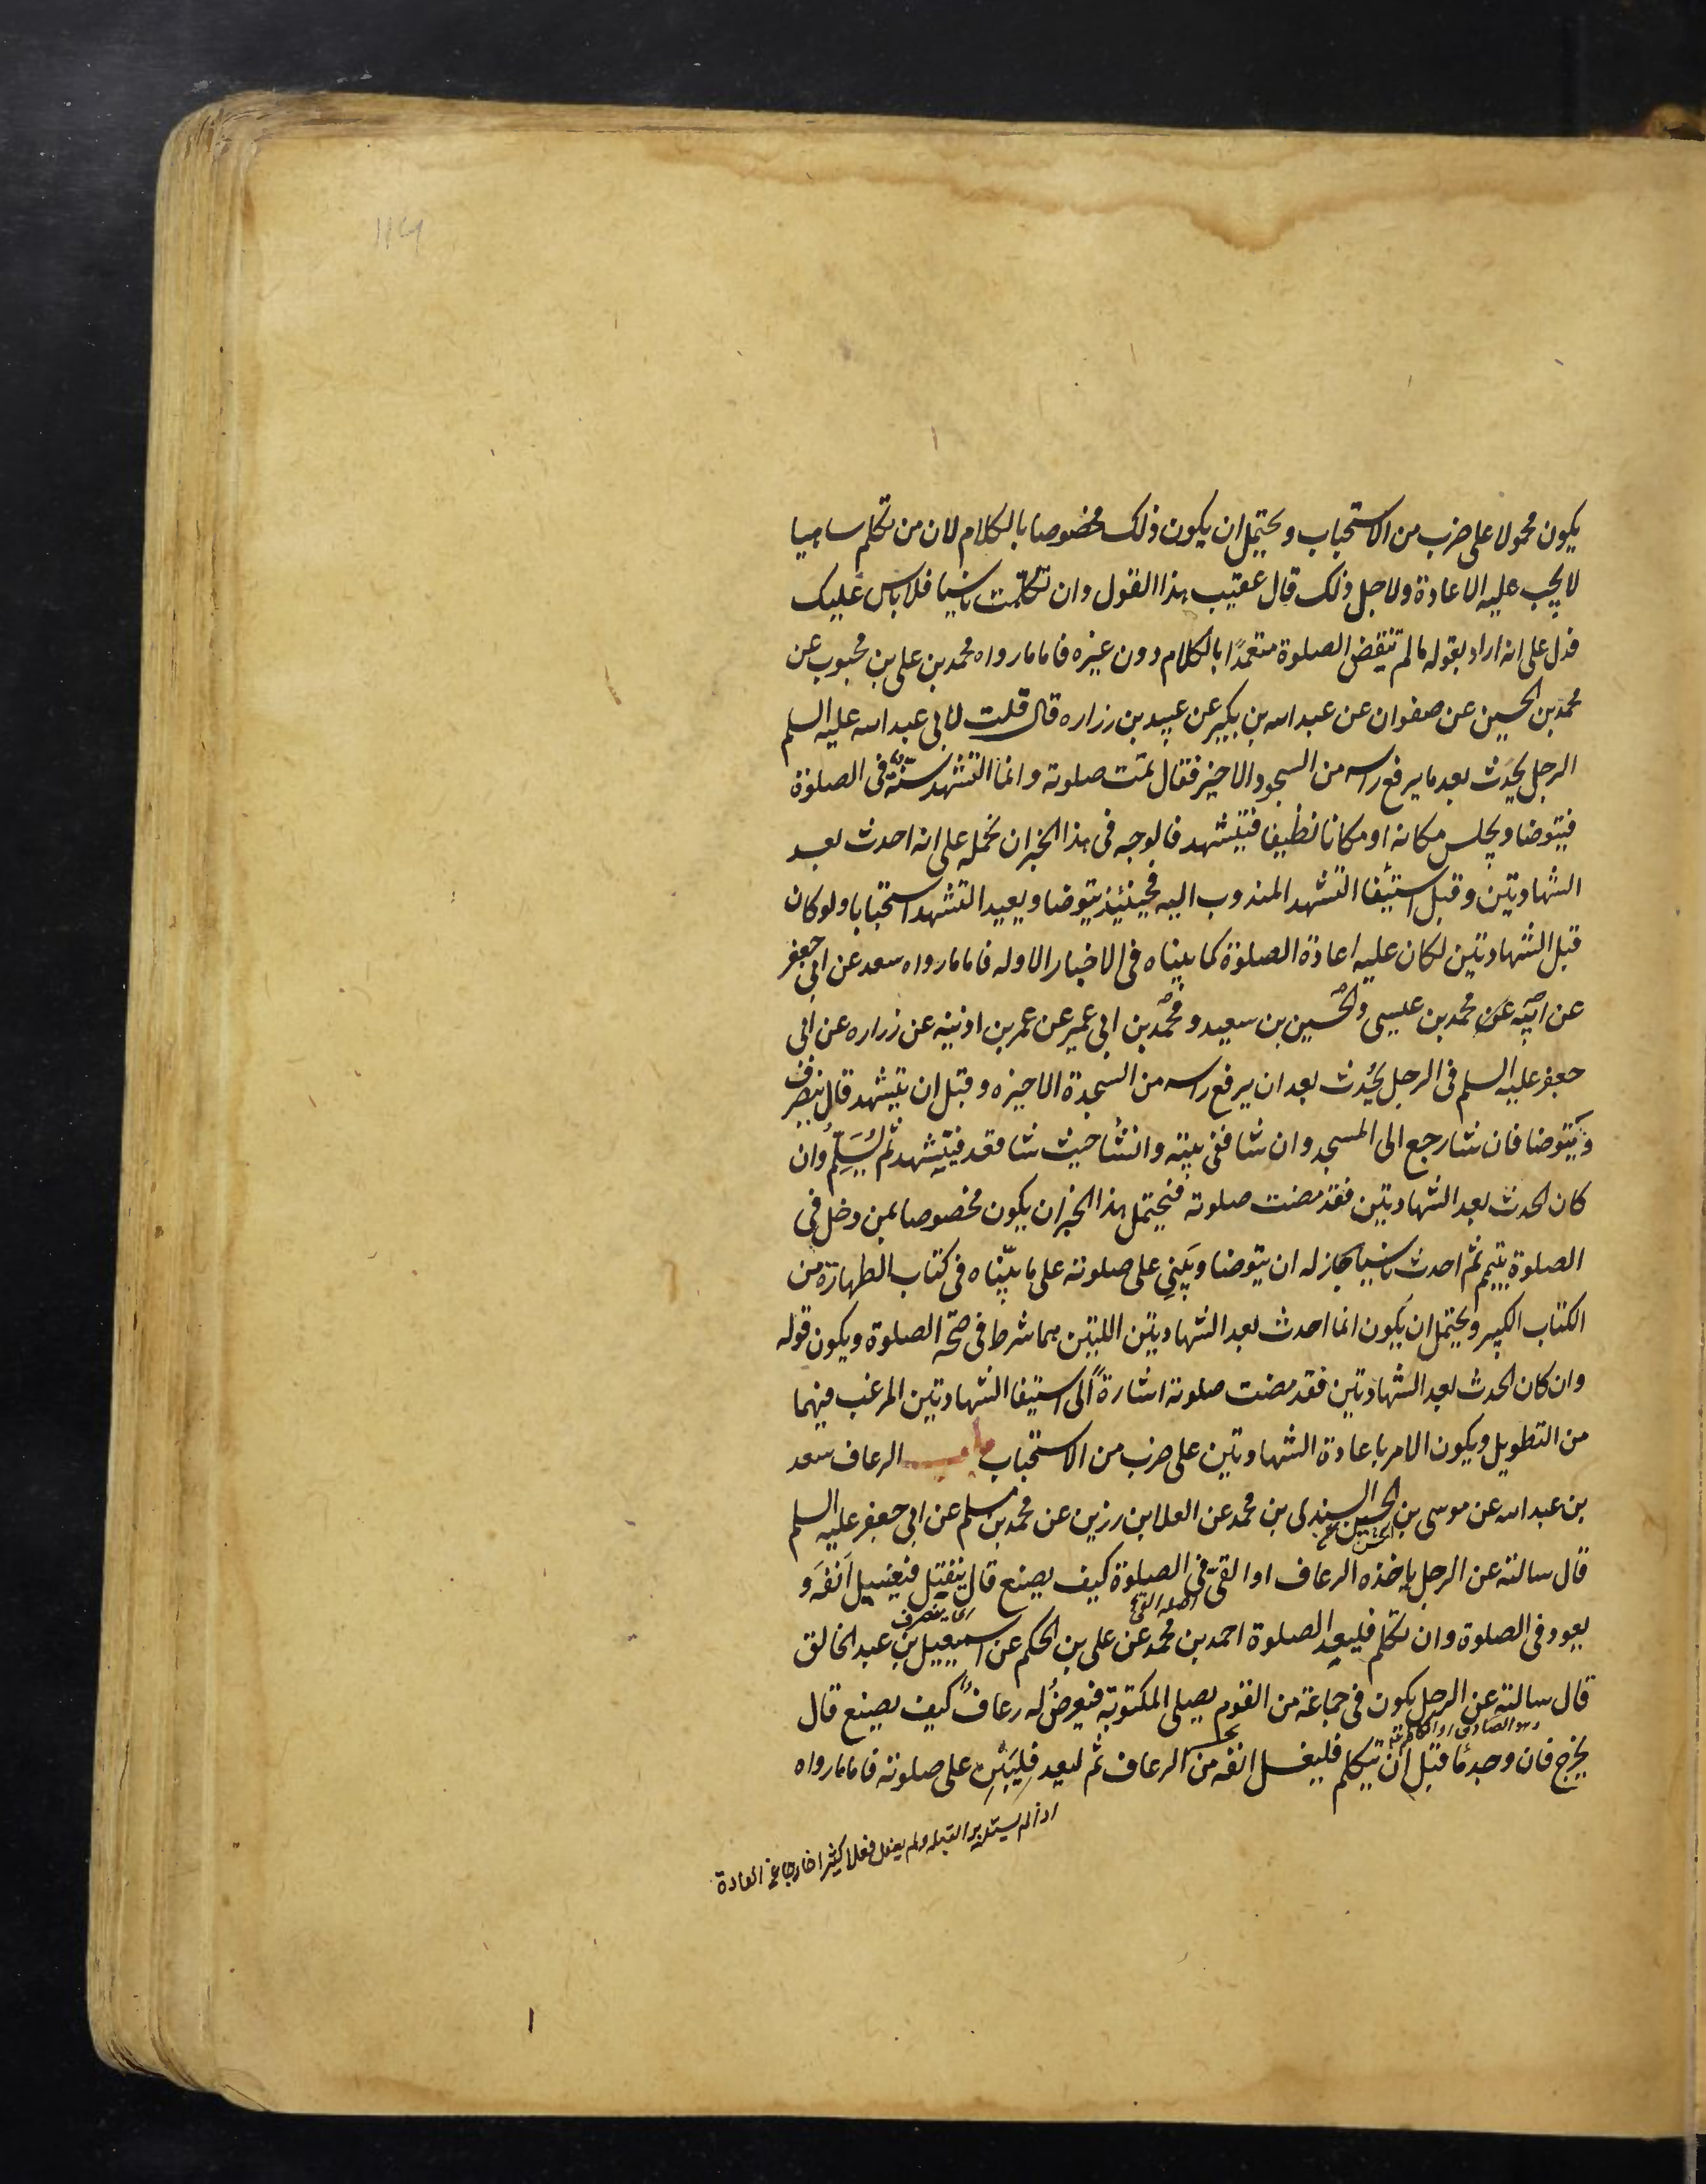 يكون محمولا على ضرب من الاستحباب ويحتمل ان يكون ذلك مخصوصا بالكلام لان من تكلم ساهيا
لا يجب عليه الاعادة ولاجل ذلك قال عقيب هذا القول وان تكلمت ناسيا فلا باس عليك
فدل على انه اراد بقوله ما لم تنقض الصلوة متعمدًا بالكلام دون غيره فاما ما رواه محمد بن على بن محبوب عن
محمد بن الحسين عن صفوان عن عبد الله بن بكير عن عبيد بن زراره قال قلت لابى عبد الله عليه السلم
الرجل يحدث بعد ما يرفع راسه من السجود الاخير فقال تمت صلوته وانما التشهد سنّة فى الصلوة
فيتوضا ويجلس مكانه او مكانا نظيفا فيتشهد فالوجه فى هذا الخبر ان نحمله على انه احدث بعد
الشهادتين وقبل استيفا التشهد المندوب اليه فحينئذ يتوضا ويعيد التشهد استحبابا ولو كان
قبل الشهادتين لكان عليه اعادة الصلوة كما بيناه فى الاخبار الاوله فاما ما رواه سعد عن ابى جعفر
عن ابيه عن محمد بن عيسى والحسين بن سعيد ومحمد بن ابى عمير عن عمر بن اذينه عن زراره عن ابى
جعفر عليه السلم فى الرجل يُحدث بعد ان يرفع راسه من السجدة الاخيره وقبل ان يتشهد قال ينصرف
ويتوضا فان شا رجع الى المسجد وان شا ففى بيته وان شا حيث شا قعد فيتشهد ثم يُسَلِّمُ وان
كان الحدث بعد الشهادتين فقد مضت صلوته فيحتمل هذا الخبر ان يكون مخصوصا بمن دخل فى
الصلوة بتيمم ثم احدث ناسيا جاز له ان يتوضا ويَبنى على صلوته على ما بيّناه فى كتاب الطهارة من
الكتاب الكبير ويحتمل ان يكون انما احدث بعد الشهادتين اللتين هما شرط فى صحّه الصلوة ويكون قوله
وان كان الحدث بعد الشهادتين فقد مضت صلوته اشارةً الى استيفا الشهادتين المرغب فيهما
من التطويل ويكون الامر باعادة الشهادتين على ضرب من الاستحباب باب الرعاف سعد
بن عبد الله عن موسى بن الحسين السندى بن محمد عن العلا بن رزين عن محمد بن مسلم عن ابى جعفر عليه السلم
الحسن عن
قال سالته عن الرجل ياخذه الرعاف او القىّ فى الصلوة كيف يصنع قال ينفتل فيغسل اَنفَه و
يعود فى الصلوة وان تكلم فليعد الصلوة احمد بن محمد عن على بن الحكم عن اسمعيل بن عبد الخالق
اى ينصرف
قال سالته عن الرجل يكون فى جماعة من القوم يصلى المكتوبة فيعرضُ له رعافٌ كيف يصنع قال
يخرج فان وجد ما قبل ان يتكلم فليغسل انفه من الرعاف ثم ليعد فليَبْنِ على صلوته فاما ما رواه
اذا لم يستدبر القبله ولم يفعل فعلا كثيرا خارجا عن العادة